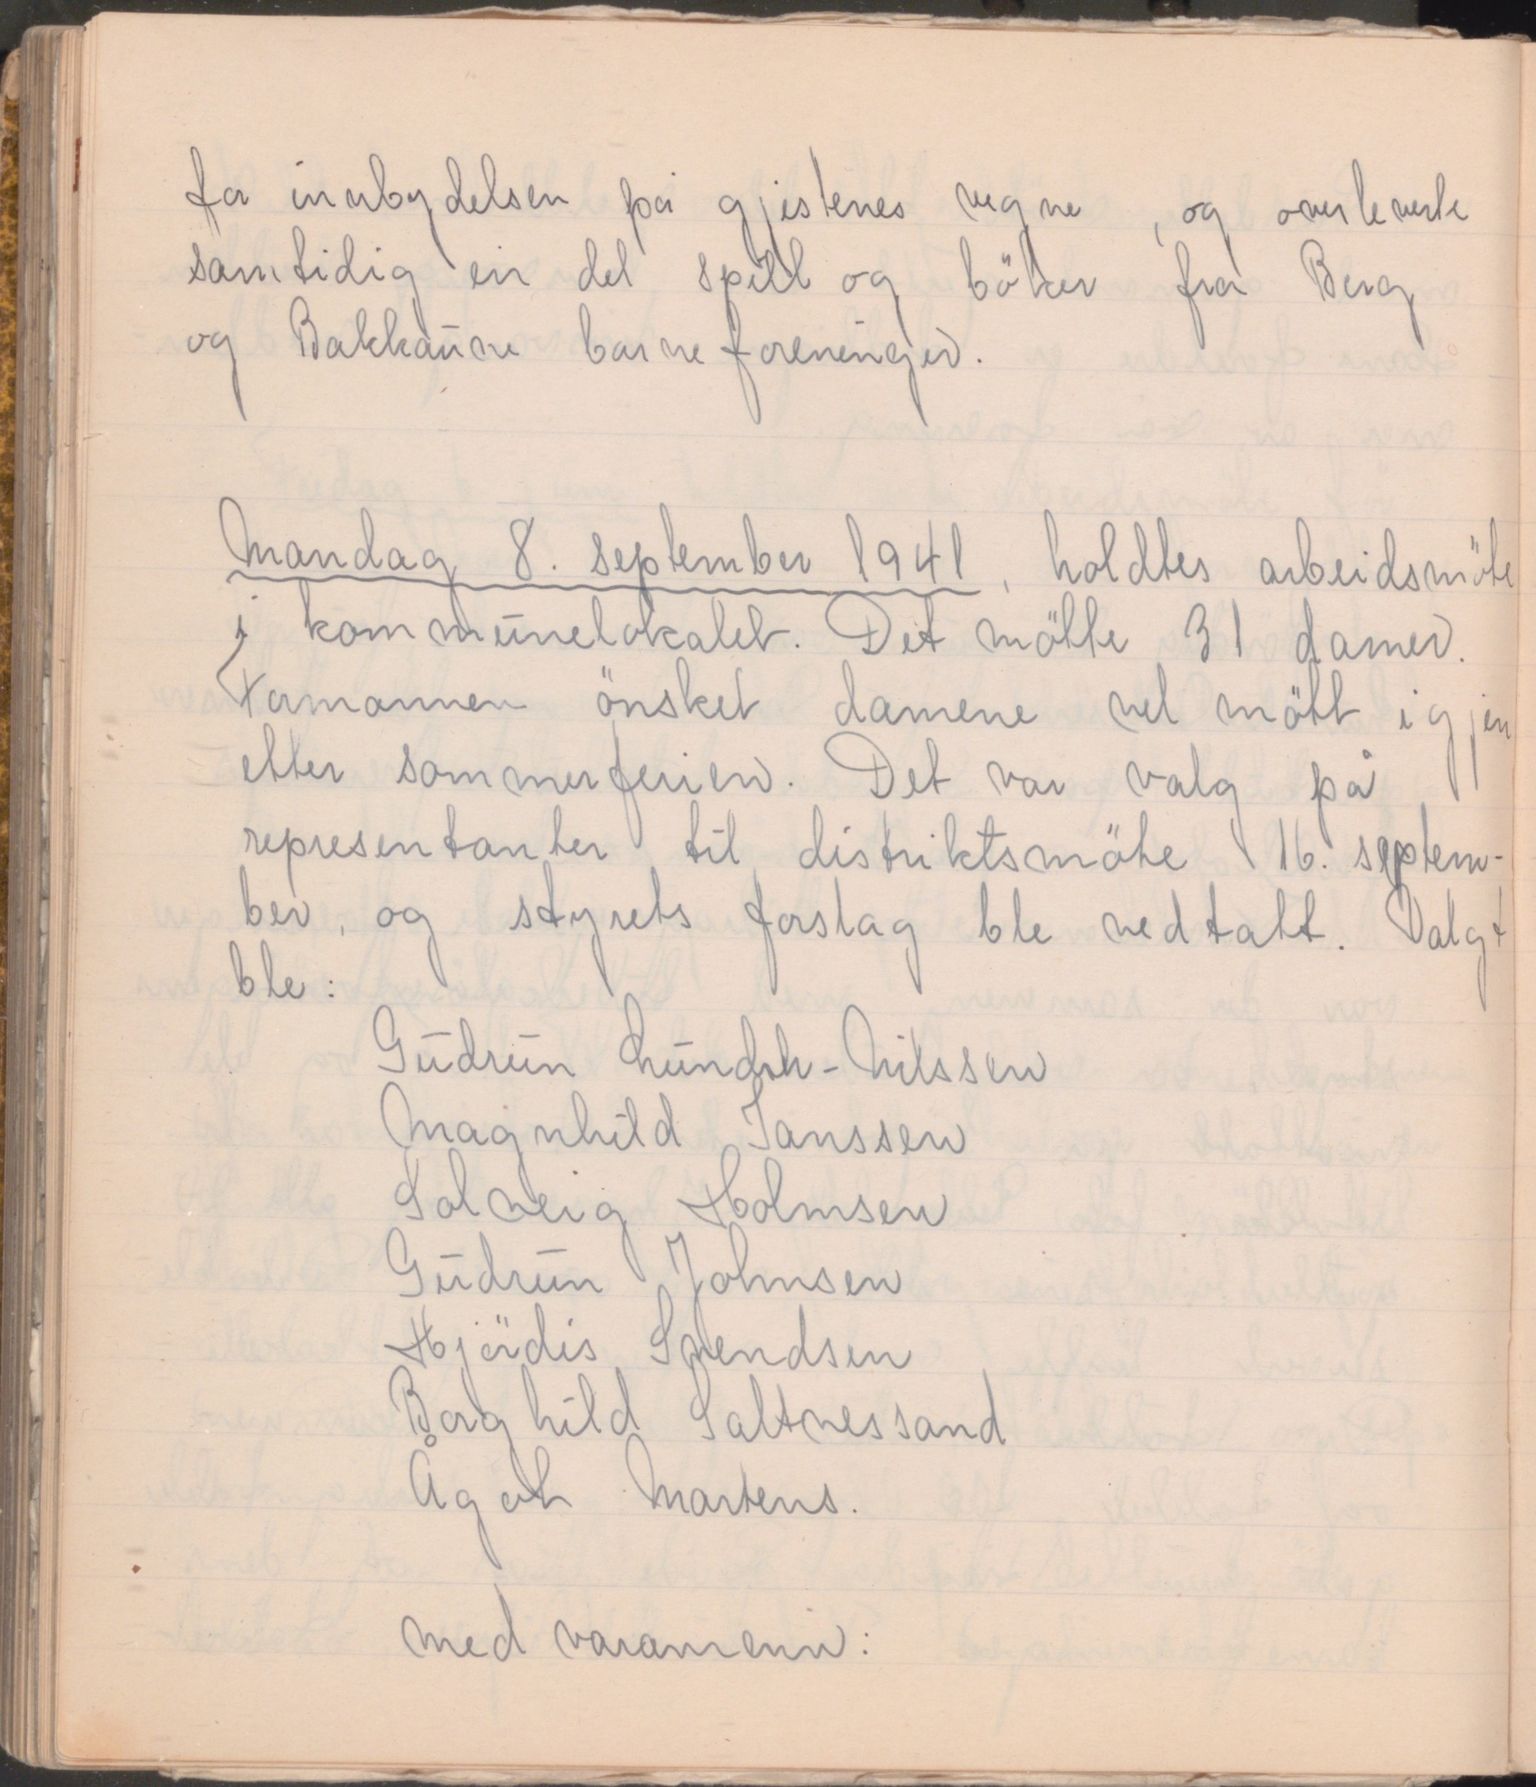 for innbydelsen på gjestenes vegne, og overleverte
samtidig en del spill og böker fra Berg
og Bakkaune barneforeninger.
Mandag 8. september 1941, holdtes arbeidsmöte
i kommunelokalet. Det mötte 31 damer.
Formannen önsket damene vel mött igjen
etter sommerferien. Det var valg på
representanter til distriktsmöte 16. septem-
ber, og styrets forslag ble vedtatt. Valgt
ble:
Gudrun Lundh-Nilssen
Magnhild Janssen
Solveig Holmsen
Gudrun Johnsen
Hjördis Svendsen
Borghild Saltnessand
Ågot Martens.
med varamenn: